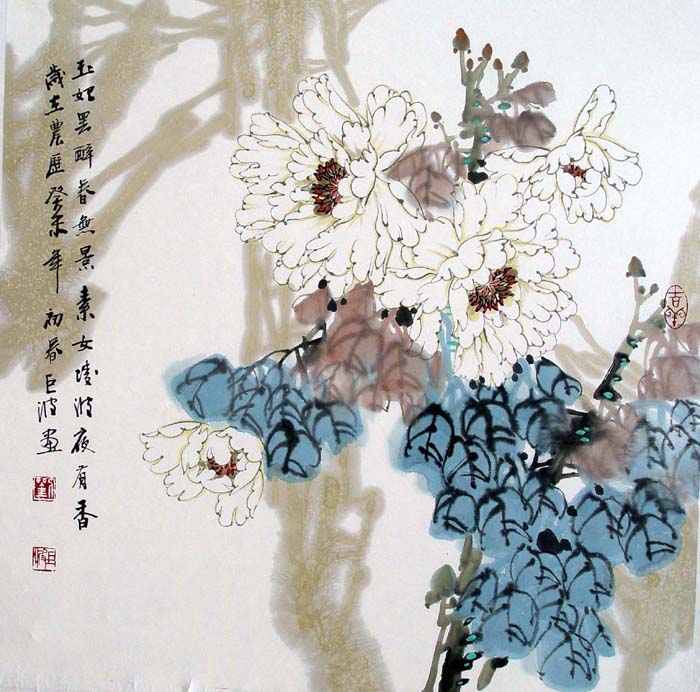 玉妃罢醉春無景素女凌波夜有香
歲在農歷癸未年初春巨波畫